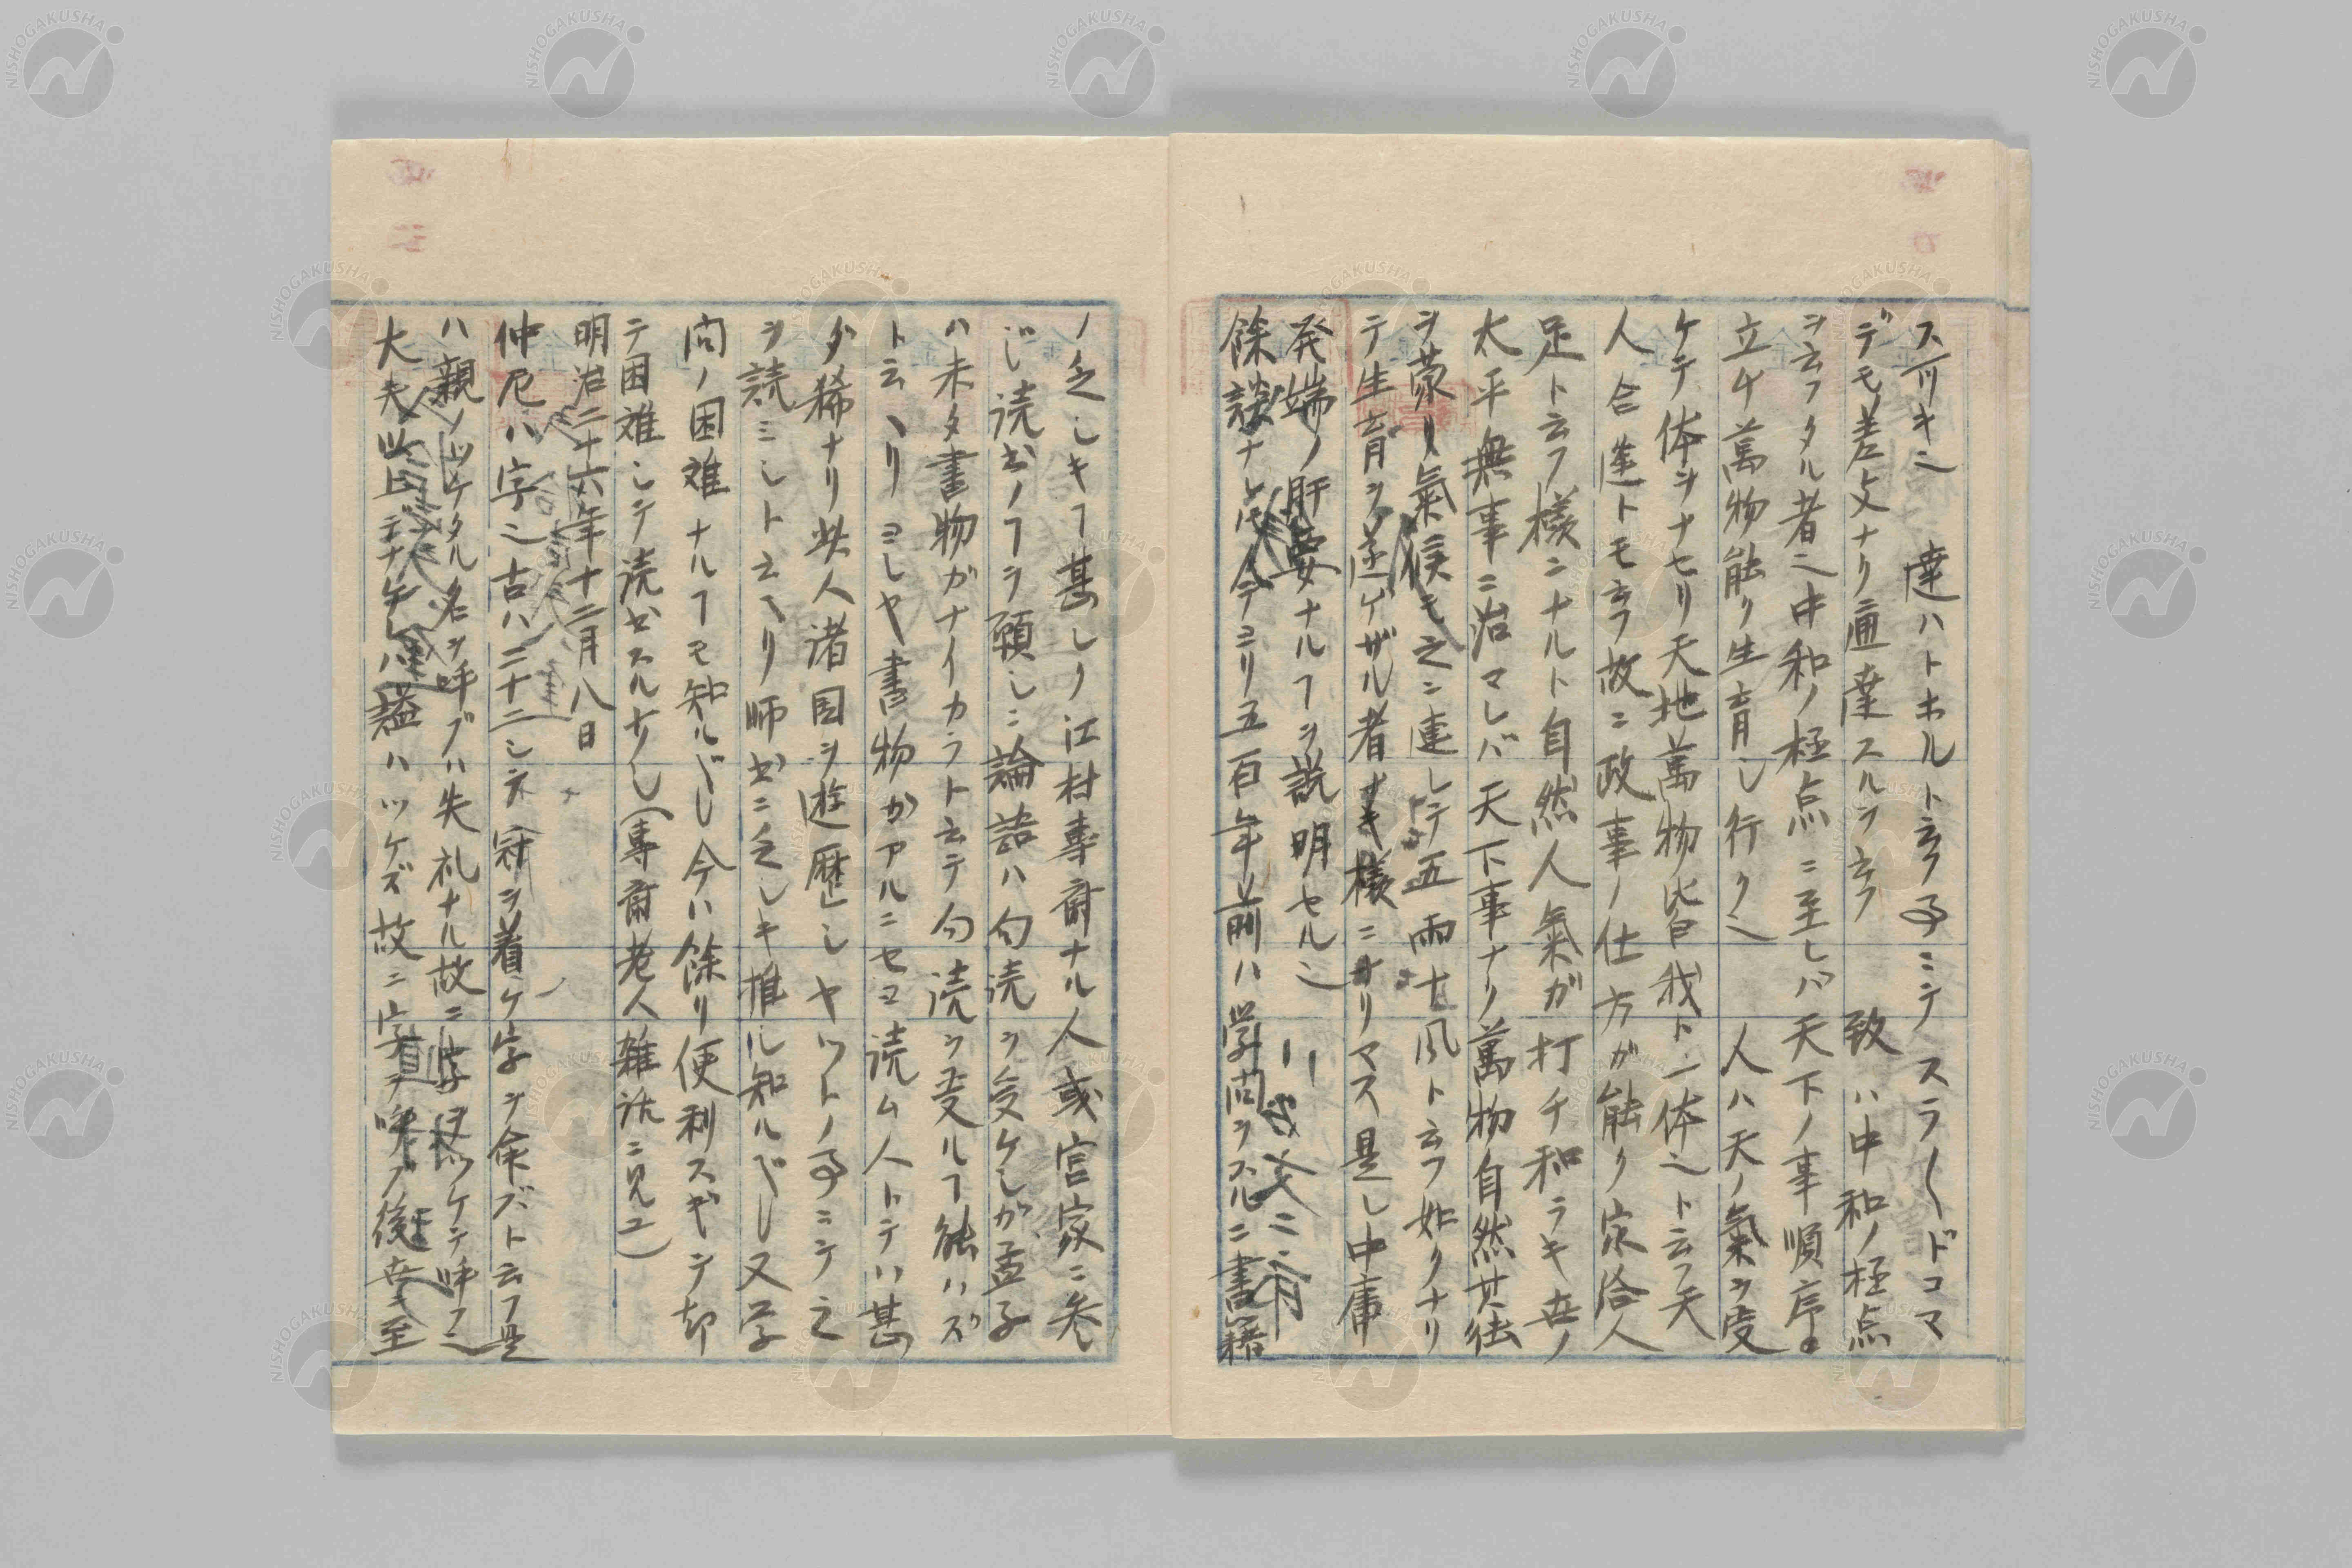 達ハトホルト云フ事ニテスラ〱ドコマ
デモ差支ナク通達スルヲ云フ 致ハ中和ノ極点
ヲ云フタル者也中和ノ極点ニ至レバ天下ノ事順序ヨ
立チ萬物能ク生育し行ク也 人ハ天ノ氣ヲ受
ケテ体ヲナセリ天地萬物皆我ト一体也ト云フ天
人合運トモ云フ故ニ政事ノ仕方ガ能ク家給人
足ト云フ様ニナルト自然人氣ガ打チ和ラキ世ノ
太平無事ニ治マレバ天下事ナク萬物自然其徳
ヲ蒙リ氣候モ之ニ連レテ五雨十風ト云フ如クナリ
テ生育ヲ遂ケザル者ナキ様ニナリマス是レ中庸
発端ノ肝要ナルヿヲ説明セル也
餘談ナレ𪜈今ヨリ五百年前ハ学問ヲスルニ書籍
ノ乏しキヿ甚しク江村専齋ナル人或宮家ニ参
じ読書ノヿヲ願しニ論語ハ句読ヲ受ケしガ孟子
ハ未タ書物ガナイカラト云テ句読ヲ受ルヿ能ハズ
ト云ヘリヨしや書物がアルニセヨ読ム人トテハ甚
ダ稀ナリ此人諸国ヲ遊歴しヤツトノ事ニテ之
ヲ読ミしト云ヘリ師書ニ乏しキ推ル知ルべし又学
問ノ困難ナルヿモ知ルべし今ハ餘リ便利スギテ却
テ困難しテ読セヌルナし(専齋老人雑話ニ見ユ)
明治二十六年十二月八日
仲尼ハ字也古ハ二十ニして冠ヲ着ケ字ヲ命ズト云フ是
ハ親ノツケタル名ヲ呼ブハ失礼ナル故ニ字ヲツケテ呼フ也
大夫以上デナケレハ諡ハツケズ故ニ字ヲ呼ブ後世ニ至